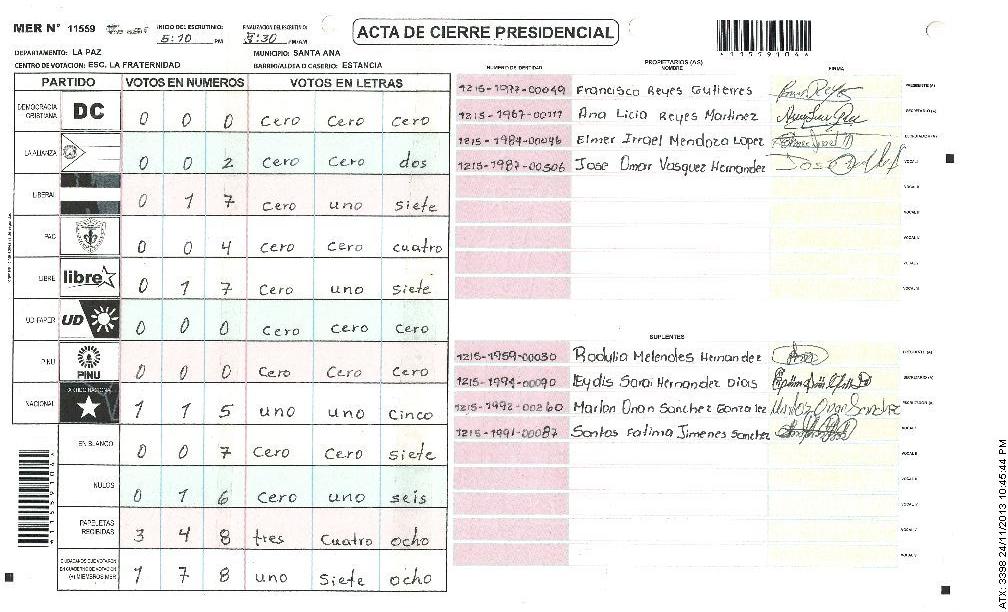 MER N° 11559
INICIO DEL ESCRUTINIO: 5:10 PM
FINALIZACION DEL ESCRUTINIO: 8:30 PM/AM
ACTA DE CIERRE PRESIDENCIAL
41159106
DEPARTAMENTO: LA PAZ
MUNICIPIO: SANTA ANA
CENTRO DE VOTACION: ESC. LA FRATERNIDAD
BARRIO/ALDEA O CASERIO: ESTANCIA
PARTIDO VOTOS EN NUMEROS VOTOS EN LETRAS
DEMOCRACIA CRISTIANA DC 0 0 0 cero cero cero
LA ALIANZA 0 0 2 cero cero dos
LIBERAL 0 1 7 cero uno siete
PAC 0 0 4 cero cero cuatro
LIBRE libre 0 1 7 cero uno siete
UD FAPER UD 0 0 0 cero cero cero
PINU PINU 0 0 0 cero cero cero
NACIONAL PARTIDO NACIONAL 1 1 5 uno uno cinco
EN BLANCO 0 0 7 cero cero siete
NULOS 0 1 6 cero uno seis
PAPELETAS RECIBIDAS 3 4 8 tres cuatro ocho
CIUDADANOS QUE VOTARON EN CUADERNO DE VOTACION (+) MIEMBROS MER 1 7 8 uno siete ocho
PROPIETARIOS (AS)
NUMERO DE IDENTIDAD NOMBRE FIRMA
1215-1977-00049 Francisco Reyes Gutierres PRESIDENTE (A)
1215-1967-00117 Ana Licia Reyes Martinez SECRETARIO (A)
1215-1984-00046 Elmer Irrael Mendoza Lopez ESCRUTADOR (A)
1215-1987-00506 Jose Omar Vasquez Hernandez VOCAL I
VOCAL II
VOCAL III
VOCAL IV
VOCAL V
SUPLENTES
1215-1959-00030 Rodulia Melendes Hernandez PRESIDENTE (A)
1215-1994-00090 Leydis Sarai Hernandez Dias SECRETARIO (A)
1215-1992-00260 Marlon Onan Sanchez Gonzalez ESCRUTADOR (A)
1215-1991-00087 Santos Fatima Jimenes Sanchez VOCAL I
VOCAL II
ATX: 3398 24/11/2013 10:45:44 PM